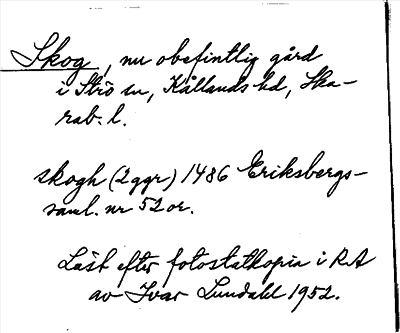 Skog, nu obefintlig gård
i Strö sn, Kållands hd, Ska-
rab. l.
skogh (2 ggr) 1486 Eriksbergs-
saml. nr 52 or.
Läst efter fotostatkopia i RA
av Ivar Lundahl 1952.